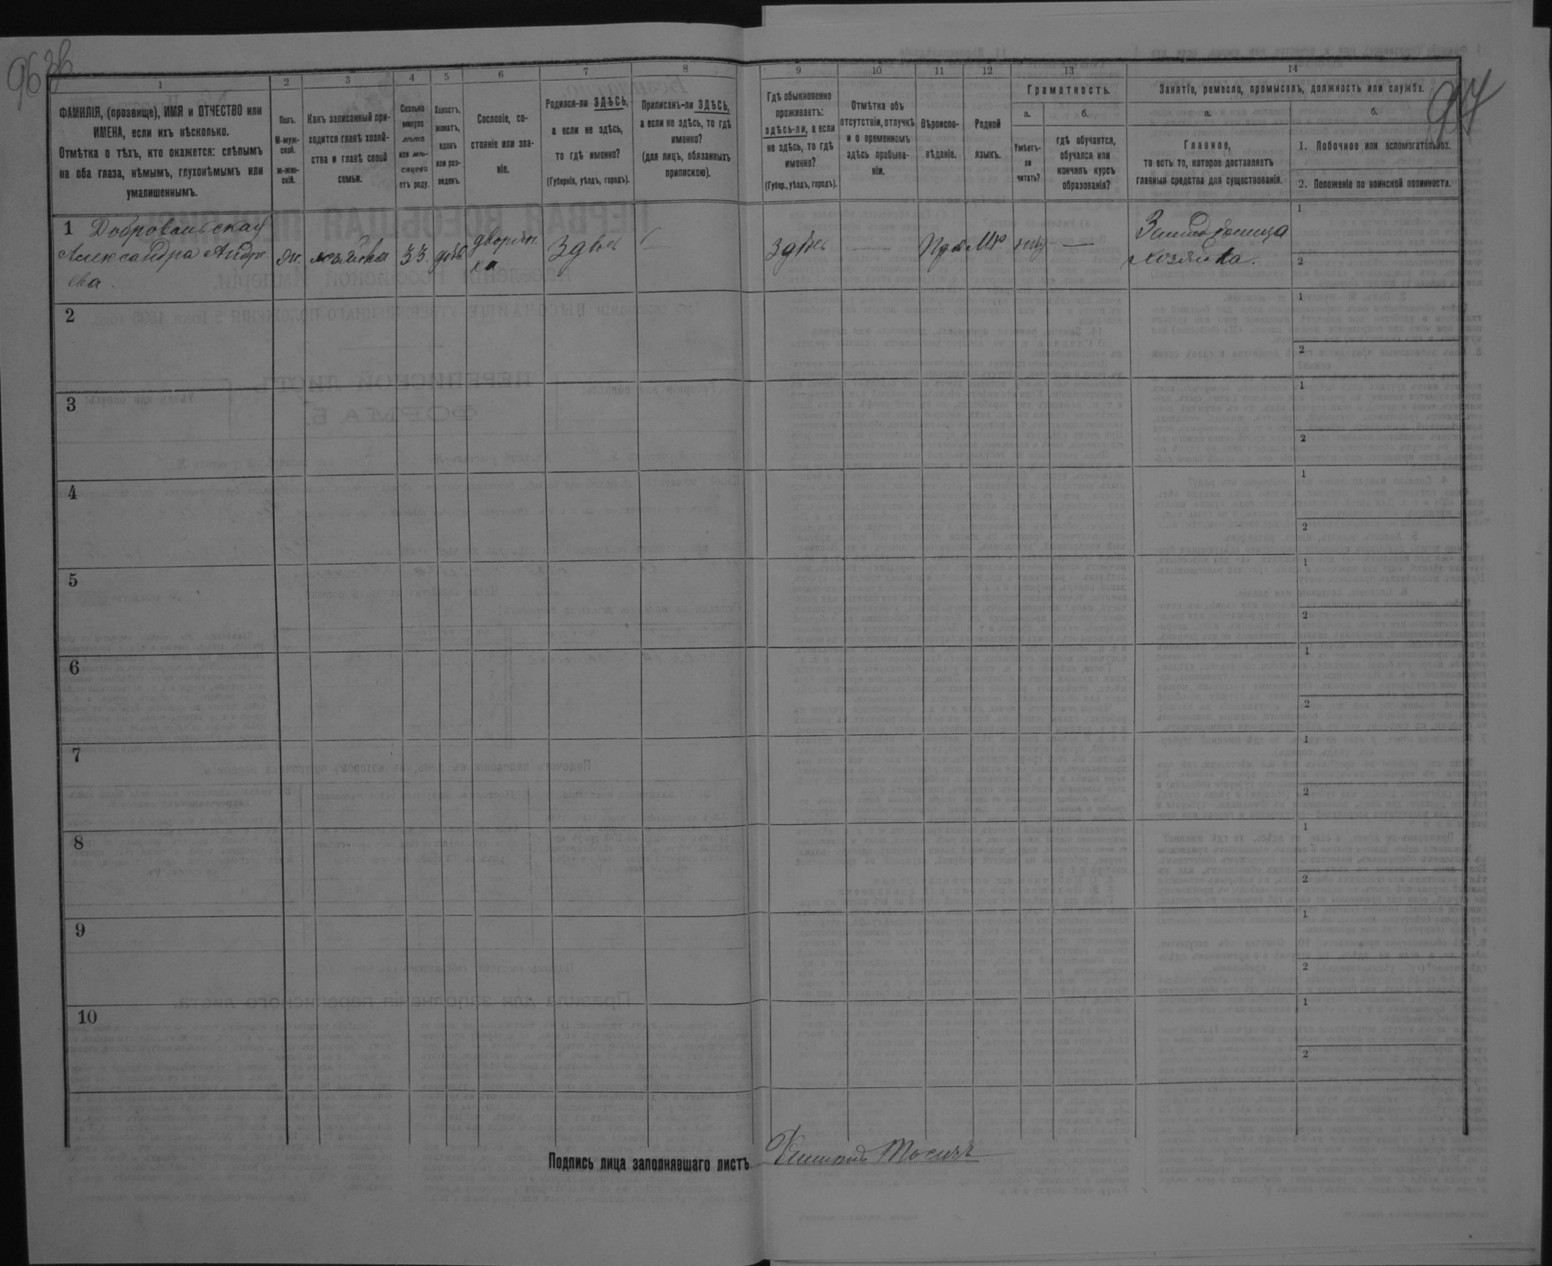 96 об
97
1
2
3
4
5
6
7
8
9
10
11
12
13
14
ФАМИЛІЯ, (прозвище), ИМЯ и ОТЧЕСТВО или
ИМЕНА, если ихъ нѣсколько.
Отмѣтка о тѣхъ, кто окажется: слѣпымъ
на оба глаза, нѣмымъ, глухонѣмымъ или
умалишеннымъ.
Полъ.
М-муж-
ской.
Ж-жен-
скій.
Какъ записанный при-
ходится главѣ хозяй-
ства и главѣ своей
семьи.
Сколько
минуло
лѣтъ
или мѣ-
сяцевъ
отъ роду.
Холостъ,
женатъ,
вдовъ
или раз-
веденъ.
Сословіе, со-
стояніе или зва-
ніе.
Родился-ли ЗДѢСЬ,
а если не здѣсь,
то гдѣ именно?
(Губернія, уѣздъ, городъ).
Приписанъ-ли ЗДѢСЬ,
а если не здѣсь, то гдѣ
именно?
(для лицъ, обязанныхъ
припискою).
Гдѣ обыкновенно
проживаетъ:
здѣсь-ли, а если
не здѣсь, то гдѣ
именно?
(Губер., уѣздъ, городъ).
Отмѣтка объ
отсутствіи, отлучкѣ
и о временномъ
здѣсь пребыва-
ніи.
Вѣроиспо-
вѣданіе.
Родной
языкъ.
Грамотность.
а.
Умѣетъ-
ли
читать?
б.
гдѣ обучается,
обучался или
кончилъ курсъ
образованія?
Занятіе, ремесло, промыселъ, должность или служба.
а.
Главное,
то есть то, которое доставляетъ
главныя средства для существованія.
б.
1. Побочное или вспомогательное.
2. Положеніе по воинской повинности.
1 Добровольская
Александра Андре
ева.
Ж. хозяйка 33 дѣв. дворян
ка
Здѣсь —
Здѣсь —
нѣтъ —
хозяйка.
1
2
2
1
2
3
1
2
4
1
2
5
1
2
6
1
2
7
1
2
8
1
2
9
1
2
10
1
2
Подпись лица заполнявшаго листъ